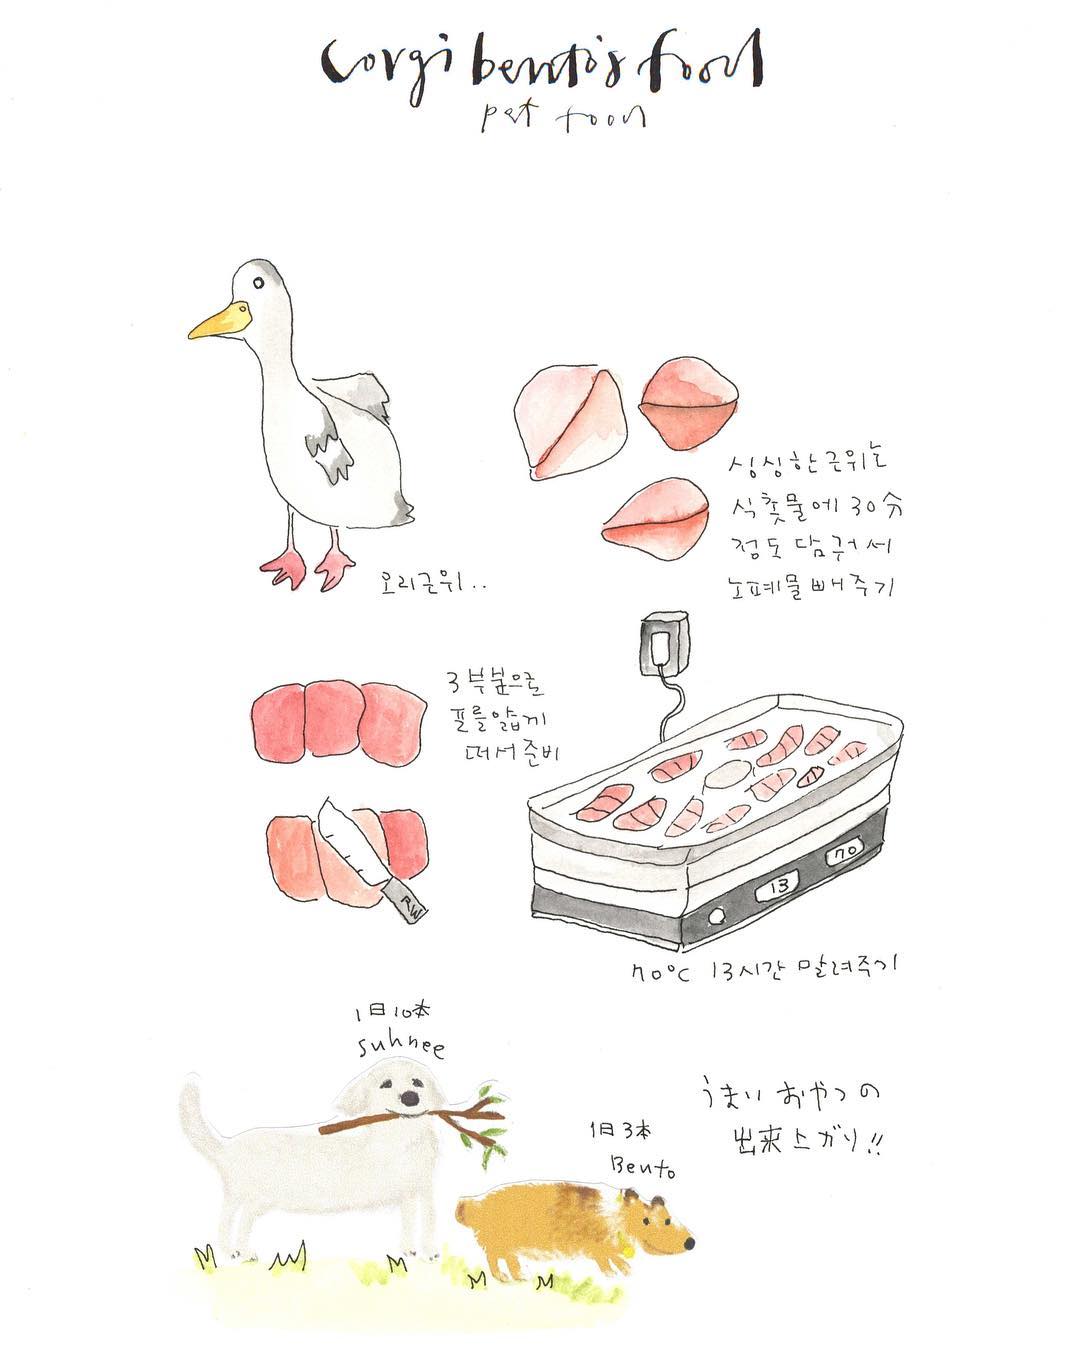 Corgi bento's food
pet food
오리근위..
싱싱한 근위는
식촛물에 30分
정도 담궈서
노폐물 빼주기
3 부분으로
포를 얇게
떠서 준비
RW
70
13
70℃ 13시간 말려주기
1日10本
suhnee
1日3本
Bento
うまい おやつの
出来上がり!!